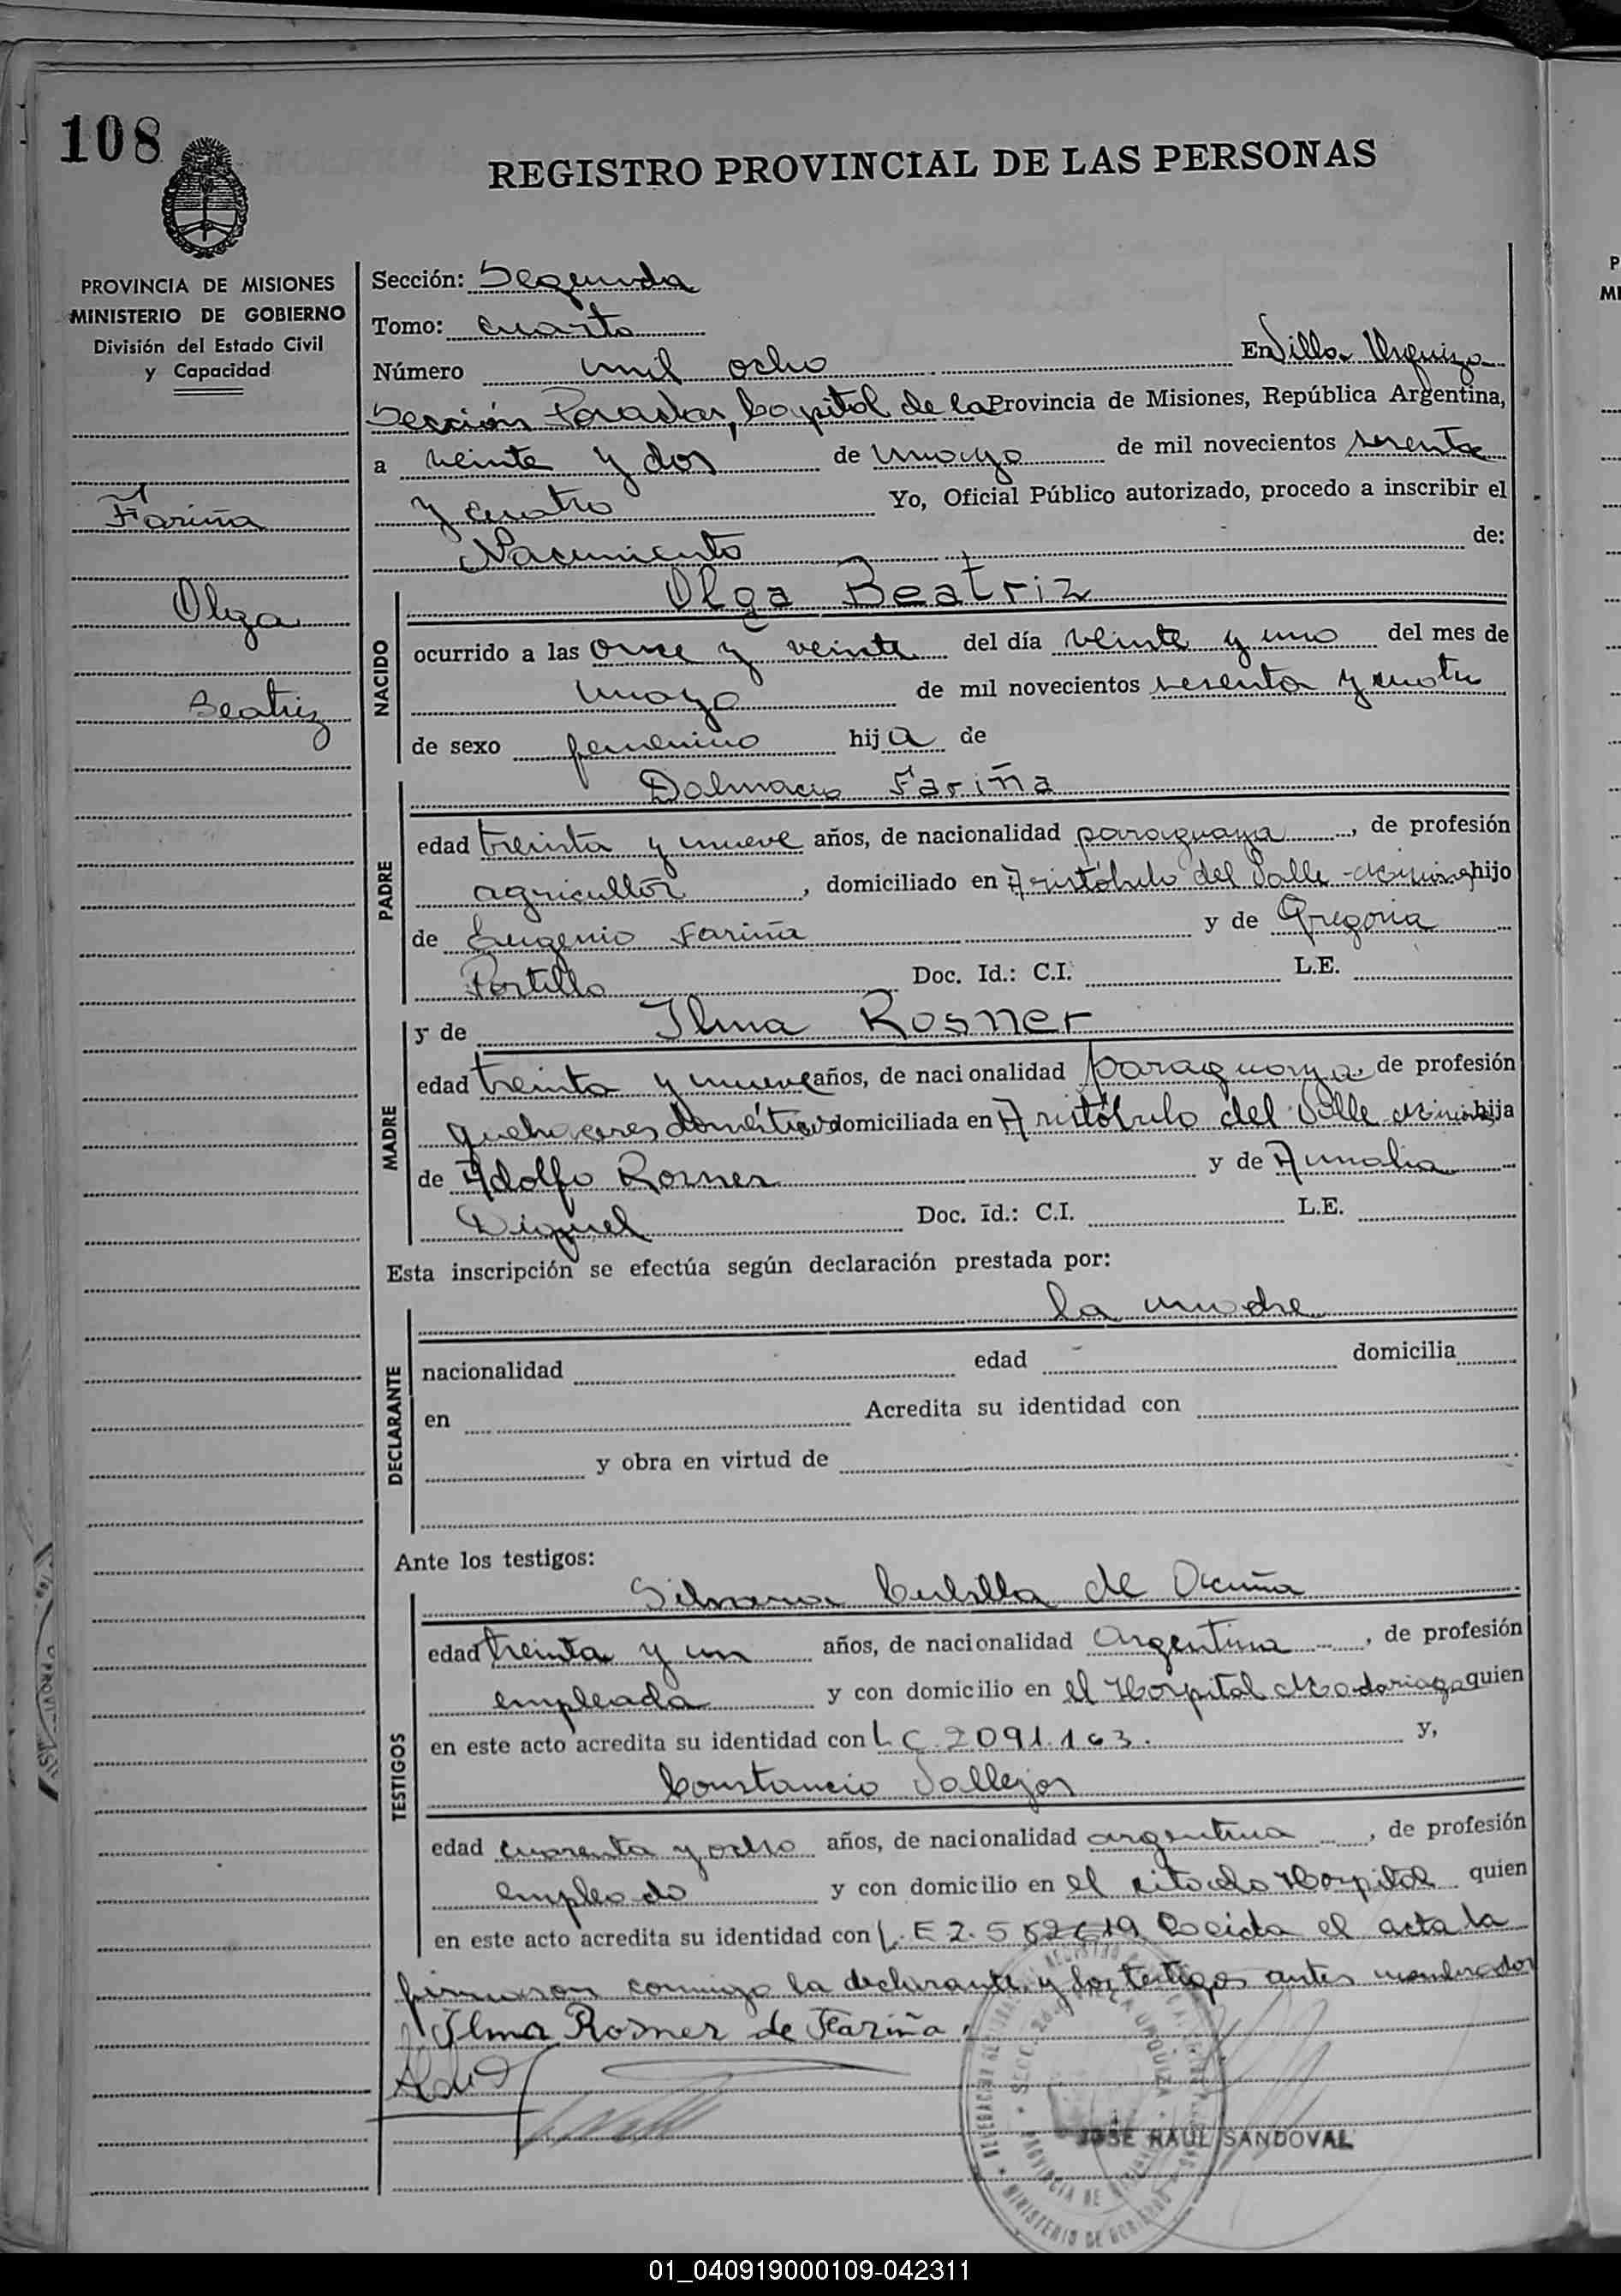 108
REGISTRO PROVINCIAL DE LAS PERSONAS
PROVINCIA DE MISIONES
MINISTERIO DE GOBIERNO
División del Estado Civil
y Capacidad
Fariña
Olga
Beatriz
Sección: Segunda
Tomo: cuarto
Número mil ocho En Villa Urquiza
Sección Posadas, Capital de la Provincia de Misiones, República Argentina,
a veinte y dos de mayo de mil novecientos sesenta
y cuatro Yo, Oficial Público autorizado, procedo a inscribir el
Nacimiento de:
NACIDO
Olga Beatriz
ocurrido a las once y veinte del día veinte y uno del mes de
mayo de mil novecientos sesenta y cuatro
de sexo femenino hija de
PADRE
Dalmacio Fariña
edad treinta y nueve años, de nacionalidad paraguaya, de profesión
agricultor, domiciliado en Aristóbulo del Valle - Misiones hijo
de Eugenio Fariña y de Gregoria
Portillo Doc. Id.: C.I. L.E.
MADRE
y de Ilma Rosner
edad treinta y nueve años, de nacionalidad paraguaya de profesión
quehaceres domésticos domiciliada en Aristóbulo del Valle Misiones hija
de Adolfo Rosner y de Amalia
Doc. Id.: C.I. L.E.
Esta inscripción se efectúa según declaración prestada por:
DECLARANTE
la madre
nacionalidad edad domicilia
en Acredita su identidad con
y obra en virtud de
Ante los testigos:
TESTIGOS
de Acuña
edad treinta y un años, de nacionalidad Argentina, de profesión
empleada y con domicilio en el Hospital Madariaga quien
en este acto acredita su identidad con L C 2.091.163. y,
Constancio Vallejos
edad cuarenta y ocho años, de nacionalidad argentina, de profesión
empleado y con domicilio en el citado Hospital quien
en este acto acredita su identidad con L. E 2.5 Leída el acta la
firmaron conmigo la declarante y los testigos antes nombrados
Ilma Rosner de Fariña
JOSE RAUL SANDOVAL
01_040919000109-042311